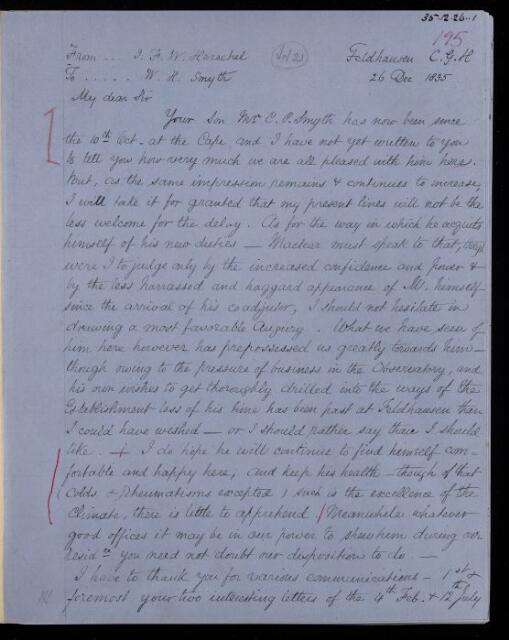 35-12-26-1
195
From ... J. F. W. Herschel Feldhausen C.G.H
To ..... W. H. Smyth 26 Dec 1835
My dear Sir
Your Son Mr C. P. Smyth has now been since
the 10th Oct. at the Cape and I have not yet written to you
to tell you how very much we are all pleased with him here.
But, as the same impression remains & continues to increase,
I will take it for granted that my present lines will not be the
less welcome for the delay. As for the way in which he acquits
himself of his new duties — Maclear must speak to that, though
were I to judge only by the increased confidence and power &
by the less harrassed and haggard appearance of M. himself
since the arrival of his coadjutor, I should not hesitate in
drawing a most favorable Augury. What we have seen of
him here however has prepossessed us greatly towards him —
though owing to the pressure of business in the Observatory, and
his own wishes to get thoroughly drilled into the ways of the
Establishment less of his time has been past at Feldhausen than
I could have wished — or I should rather say than I should
like. — I do hope he will continue to find himself com-
fortable and happy here, and keep his health — though of that
(Colds & Rheumatisms excepted) such is the excellence of the
Climate, there is little to apprehend. Meanwhile whatever
good offices it may be in our power to shew him during our
resid ce you need not doubt our disposition to do. —
I have to thank you for various communications — 1st &
foremost your two interesting letters of the 4th Feb. & 12th July